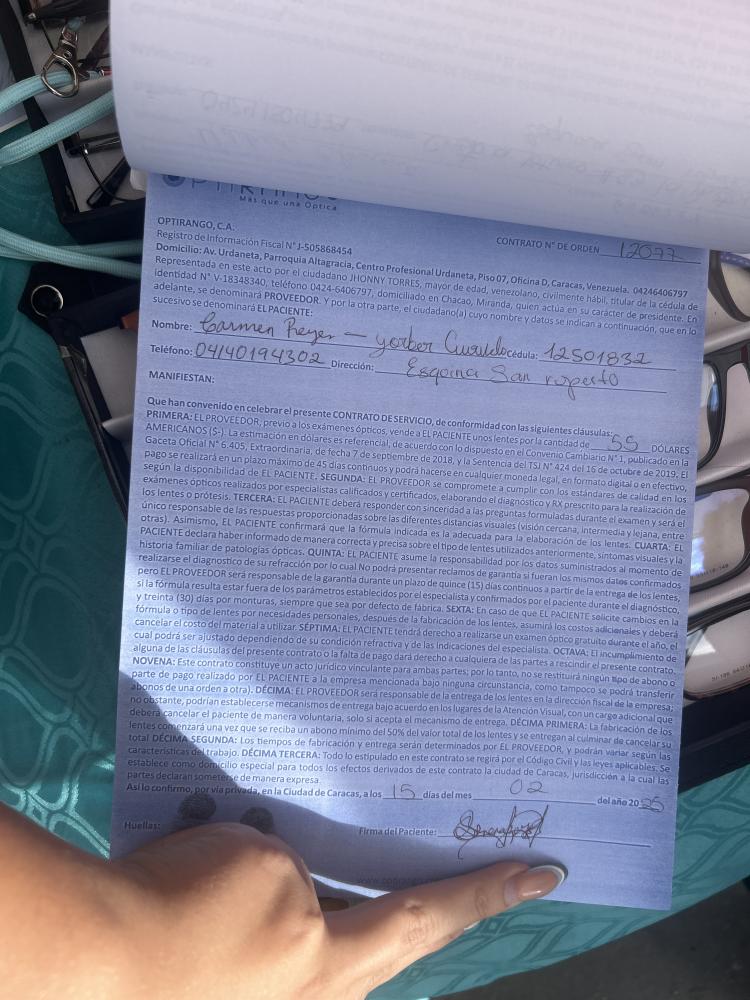 OPTIRANGO
Más que una Óptica
OPTIRANGO, C.A.
Registro de Información Fiscal N° J-505868454
CONTRATO N° DE ORDEN 12077
Domicilio: Av. Urdaneta, Parroquia Altagracia, Centro Profesional Urdaneta, Piso 07, Oficina D, Caracas, Venezuela. 04246406797
Representada en este acto por el ciudadano JHONNY TORRES, mayor de edad, venezolano, civilmente hábil, titular de la cédula de
identidad N° V-18348340, teléfono 0424-6406797, domiciliado en Chacao, Miranda, quien actúa en su carácter de presidente. En
adelante, se denominará PROVEEDOR. Y por la otra parte, el ciudadano(a) cuyo nombre y datos se indican a continuación, que en lo
sucesivo se denominará EL PACIENTE:
Nombre: Carmen Reyes - yorber Cédula: 12501832
Teléfono: 04140194302 Dirección: Esquina San ruperto
MANIFIESTAN:
Que han convenido en celebrar el presente CONTRATO DE SERVICIO, de conformidad con las siguientes cláusulas:
PRIMERA: EL PROVEEDOR, previo a los exámenes ópticos, vende a EL PACIENTE unos lentes por la cantidad de 55 DÓLARES
AMERICANOS ($-). La estimación en dólares es referencial, de acuerdo con lo dispuesto en el Convenio Cambiario N° 1, publicado en la
Gaceta Oficial N° 6.405, Extraordinaria, de fecha 7 de septiembre de 2018, y la Sentencia del TSJ N° 424 del 16 de octubre de 2019. El
pago se realizará en un plazo máximo de 45 días continuos y podrá hacerse en cualquier moneda legal, en formato digital o en efectivo,
según la disponibilidad de EL PACIENTE. SEGUNDA: EL PROVEEDOR se compromete a cumplir con los estándares de calidad en los
exámenes ópticos realizados por especialistas calificados y certificados, elaborando el diagnóstico y RX prescrito para la realización de
los lentes o prótesis. TERCERA: EL PACIENTE deberá responder con sinceridad a las preguntas formuladas durante el examen y será el
único responsable de las respuestas proporcionadas sobre las diferentes distancias visuales (visión cercana, intermedia y lejana, entre
otras). Asimismo, EL PACIENTE confirmará que la fórmula indicada es la adecuada para la elaboración de los lentes. CUARTA: EL
PACIENTE declara haber informado de manera correcta y precisa sobre el tipo de lentes utilizados anteriormente, síntomas visuales y la
historia familiar de patologías ópticas. QUINTA: EL PACIENTE asume la responsabilidad por los datos suministrados al momento de
realizarse el diagnostico de su refracción por lo cual No podrá presentar reclamos de garantía si fueran los mismos datos confirmados
pero EL PROVEEDOR será responsable de la garantía durante un plazo de quince (15) días continuos a partir de la entrega de los lentes,
si la fórmula resulta estar fuera de los parámetros establecidos por el especialista y confirmados por el paciente durante el diagnóstico,
y treinta (30) días por monturas, siempre que sea por defecto de fábrica. SEXTA: En caso de que EL PACIENTE solicite cambios en la
fórmula o tipo de lentes por necesidades personales, después de la fabricación de los lentes, asumirá los costos adicionales y deberá
cancelar el costo del material a utilizar. SÉPTIMA: EL PACIENTE tendrá derecho a realizarse un examen óptico gratuito durante el año, el
cual podrá ser ajustado dependiendo de su condición refractiva y de las indicaciones del especialista. OCTAVA: El incumplimiento de
alguna de las cláusulas del presente contrato o la falta de pago dará derecho a cualquiera de las partes a rescindir el presente contrato.
NOVENA: Este contrato constituye un acto jurídico vinculante para ambas partes; por lo tanto, no se restituirá ningún tipo de abono o
parte de pago realizado por EL PACIENTE a la empresa mencionada bajo ninguna circunstancia, como tampoco se podrá transferir
abonos de una orden a otra). DÉCIMA: EL PROVEEDOR será responsable de la entrega de los lentes en la dirección fiscal de la empresa;
no obstante, podrían establecerse mecanismos de entrega bajo acuerdo en los lugares de la Atención Visual, con un cargo adicional que
deberá cancelar el paciente de manera voluntaria, solo si acepta el mecanismo de entrega. DÉCIMA PRIMERA: La fabricación de los
lentes comenzará una vez que se reciba un abono mínimo del 50% del valor total de los lentes y se entregan al culminar de cancelar su
total DÉCIMA SEGUNDA: Los tiempos de fabricación y entrega serán determinados por EL PROVEEDOR, y podrán variar según las
características del trabajo. DÉCIMA TERCERA: Todo lo estipulado en este contrato se regirá por el Código Civil y las leyes aplicables. Se
establece como domicilio especial para todos los efectos derivados de este contrato la ciudad de Caracas, jurisdicción a la cual las
partes declaran someterse de manera expresa.
Así lo confirmo, por vía privada, en la Ciudad de Caracas, a los 15 días del mes 02 del año 2025
Huellas: Firma del Paciente: